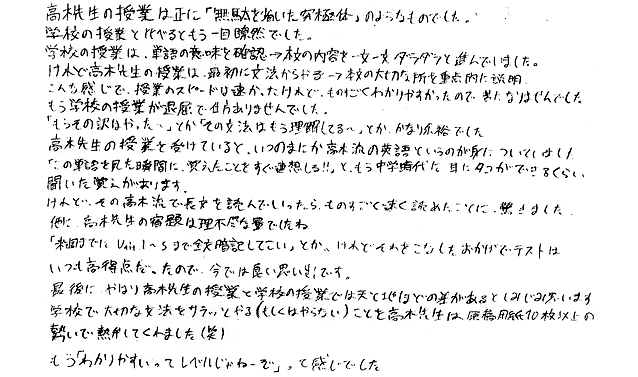 高木先生の授業は正に「無駄を省いた究極体」のようなものでした。
学校の授業と比べるともう一目瞭然でした。
学校の授業は、単語の意味を確認→本の内容を一文一文ダラダラと進んでいました。
けれど高木先生の授業は、最初に文法からやる→本の大切な所を重点的に説明
こんな感じで、授業のスピードは速かったけれど、ものすごくわかりやすかったので 苦になりませんでした
もう学校の授業が退屈で仕方ありませんでした。
「もうその訳はやった〜」とか「その文法はもう理解してる〜」とか、かなり余裕でした
高木先生の授業を受けていると、いつのまにか高木流の英語というのが身についていました
「この単語を見た瞬間に、覚えたことをすぐ連想しろ!!」と、もう中学時代た 耳にタコができるくらい
聞いた覚えがあります。
けれど、その高木流で長文を読んでいったら、ものすごく速く読めたことに、驚きました
他に、高木先生の宿題は理不尽な量でしたね
「来週までに Unit 1〜5まで全文暗記してこい」とか、けれどそれをこなしたおかげでテストは
いつも高得点だったので、今では良い思い出です。
最後に やはり高木先生の授業と学校の授業では天と地ほどの差があると しみじみ思います
学校で大切な文法をサラッとやる(もしくはやらない)ことを高木先生は、原稿用紙10枚以上の
勢いで熱弁してくれました(笑)
もう「わかりやすいってレベルじゃねーぞ」って感じでした